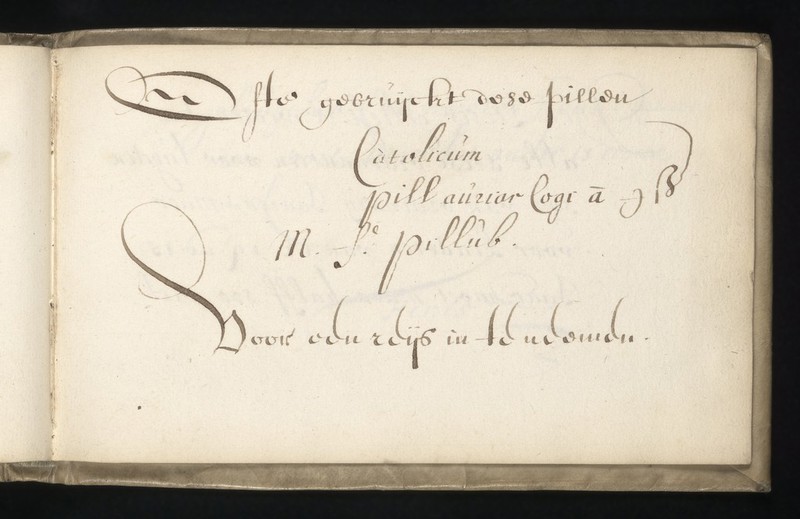 Ofte gebruyckt dese pillen
Catolicum
pill auriar Cogi ā ℈ ß
M. f.e pillub.
Voor een reijs in te neemen.